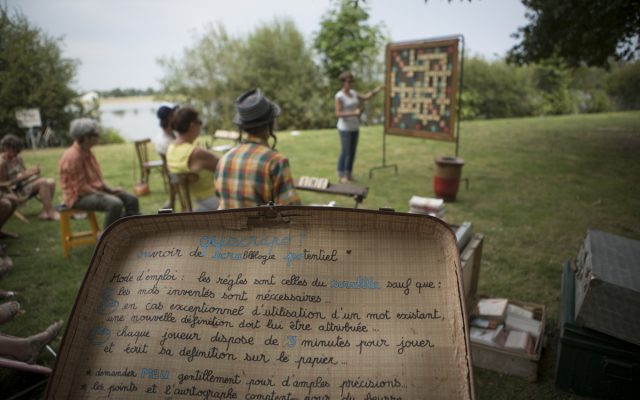 ouvroir de scrablologie potentiel *
Mode d'emploi : les régles sont celles du scrabble sauf que :
les mots inventés sont nécessaires...
en cas exceptionnel d'utilisation d'un mot existant,
une nouvelle définition doit lui être attribuée...
chaque joueur dispose de 3 minutes pour jouer
et écrit sa définition sur le papier...
* demander gentillement pour d'amples précisions...
* les points et l'aurtographe comptent pour du beurre